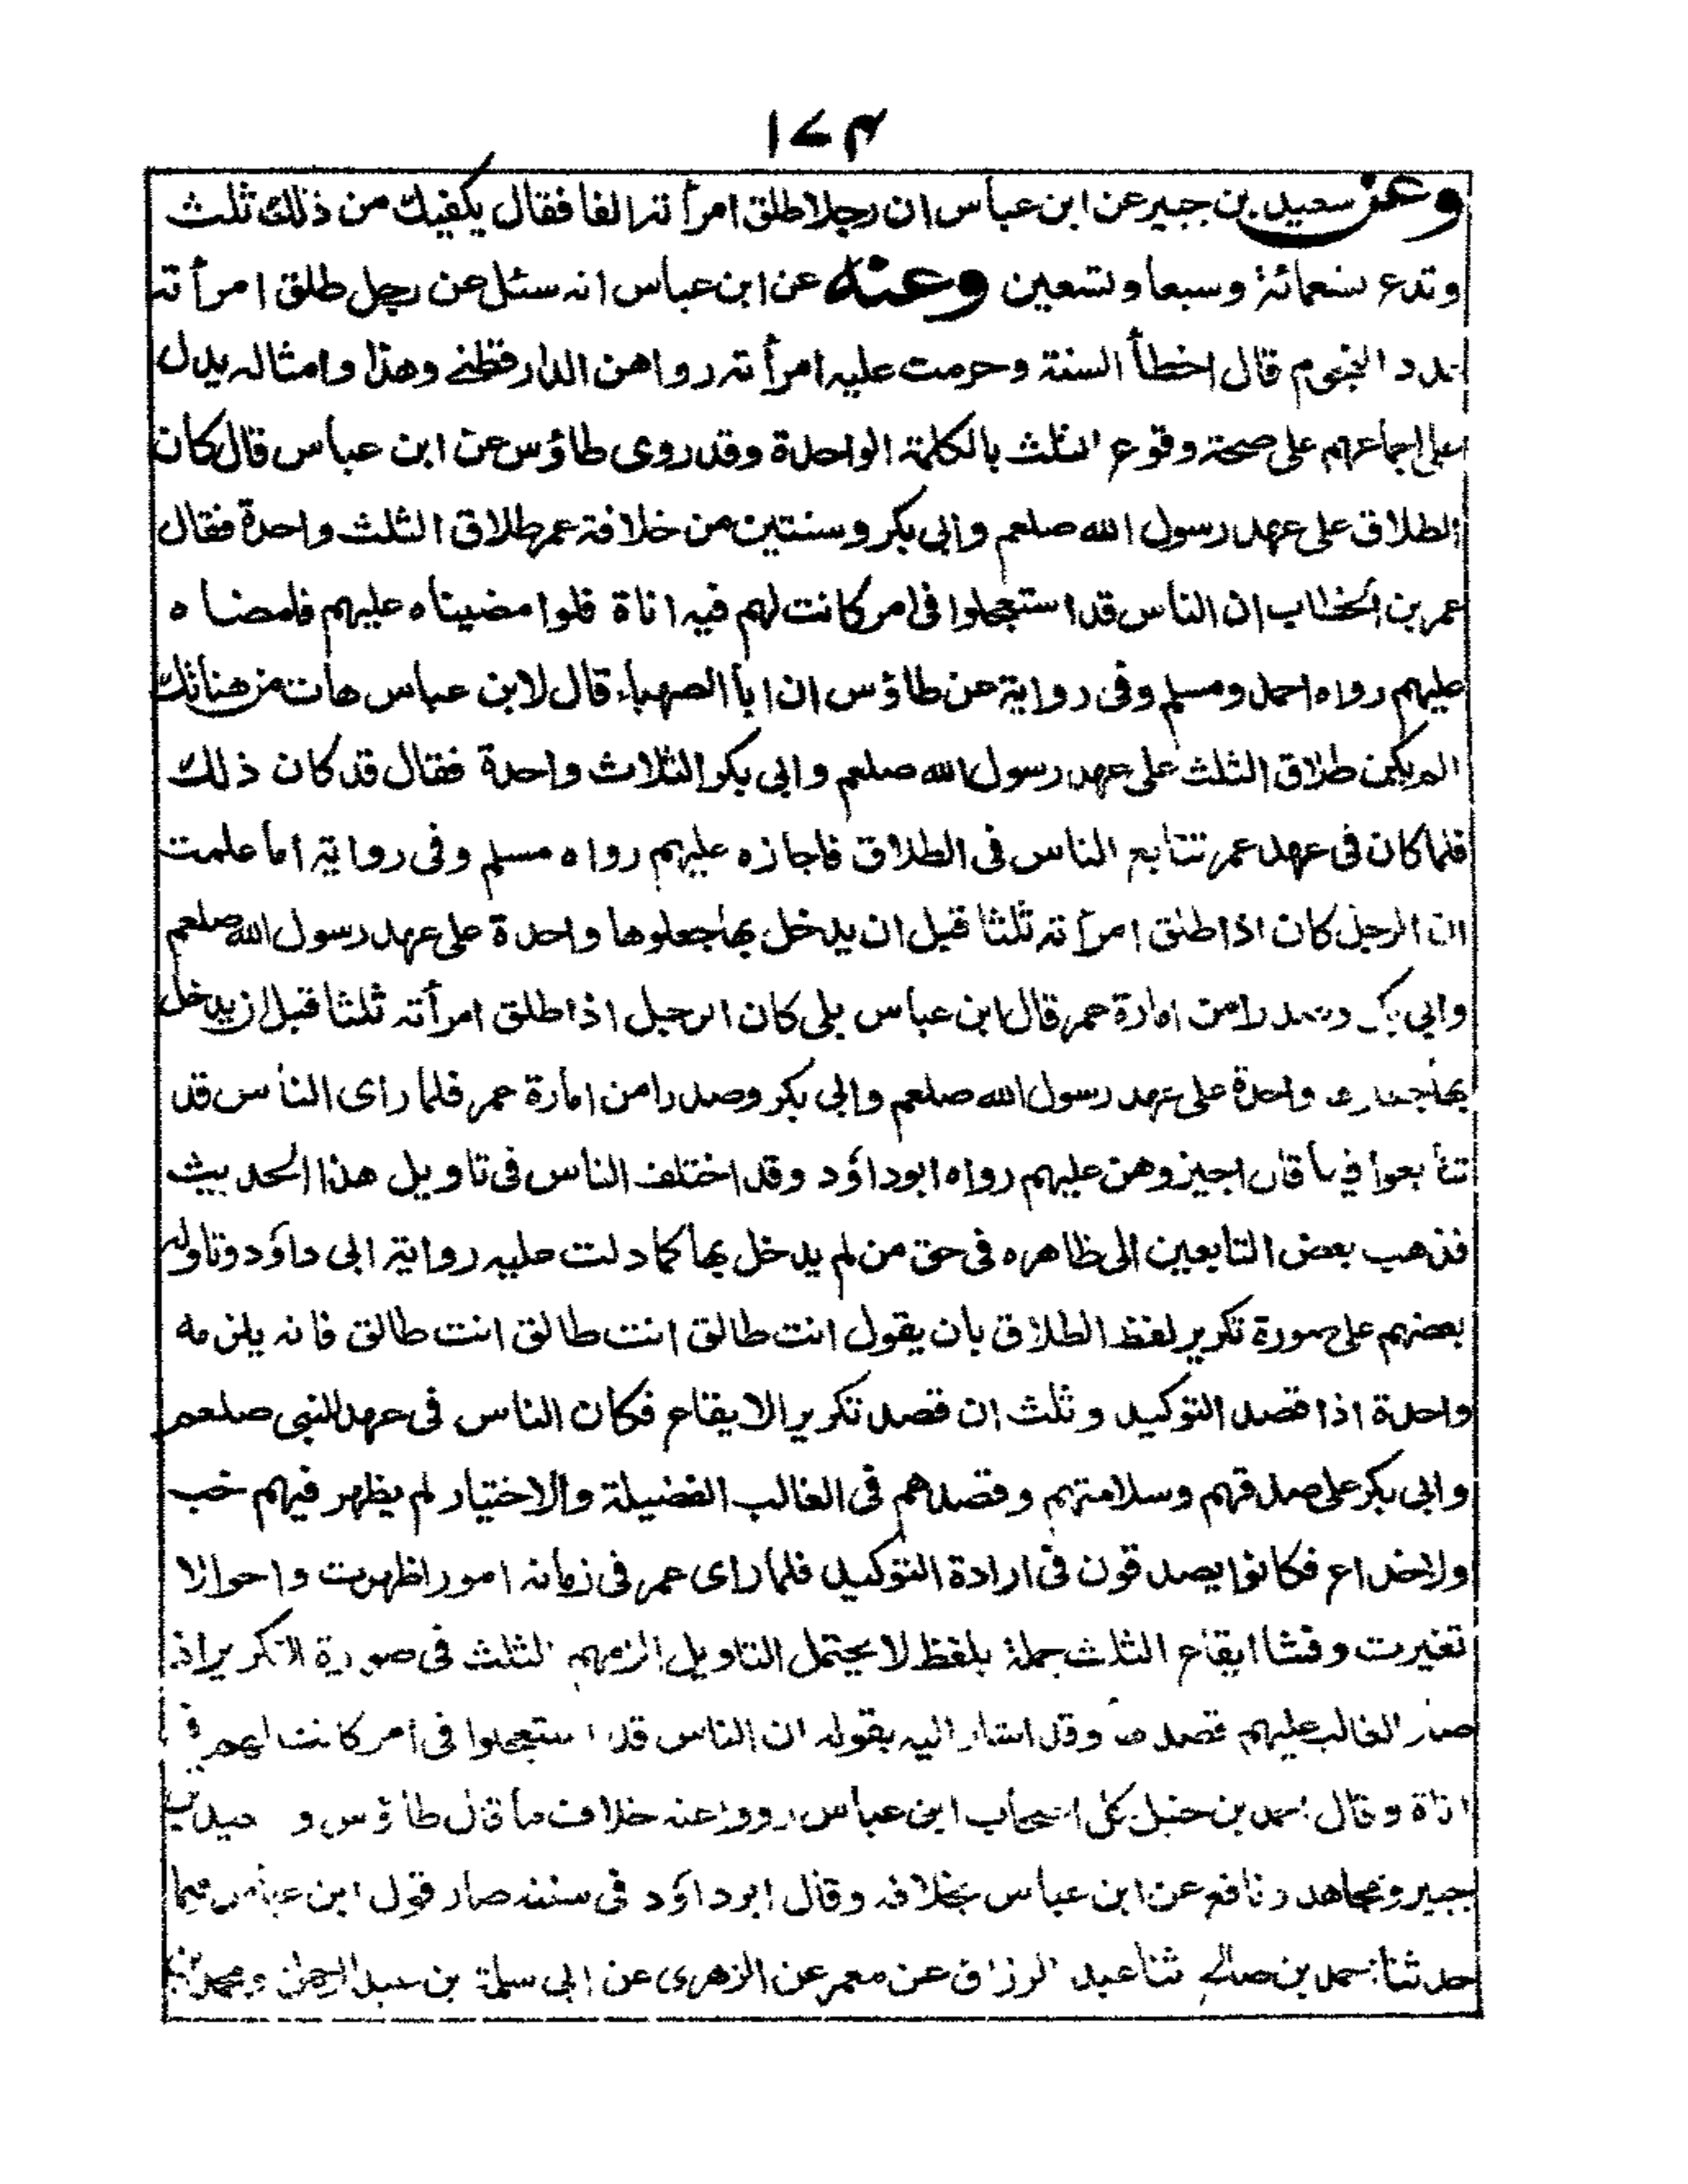 ۱۷۴
وعن سعيد بن جبير عن ابن عباس ان رجلا طلق امرأته الفا فقال يكفيك من ذلك ثلث
وتدع تسعمائة وسبعا وتسعين وعنه عن ابن عباس انه سئل عن رجل طلق امرأته
عدد النجوم قال اخطأ السنة وحرمت عليه امرأته رواهن الدارقطني وهذا وامثاله يدل
على اجماعهم على صحة وقوع الثلث بالكلمة الواحدة وقد روى طاؤس عن ابن عباس قال كان
الطلاق على عهد رسول الله صلعم وابي بكر وسنتين من خلافة عمر طلاق الثلث واحدة فقال
عمر بن الخطاب ان الناس قد استعجلوا فى امر كانت لهم فيه اناة فلوا مضيناه عليهم فامضاه
عليهم رواه احمد ومسلم وفى رواية عن طاؤس ان ابا الصهباء قال لابن عباس هات من هناتك
الم يكن طلاق الثلث على عهد رسول الله صلعم وابى بكر الثلاث واحدة فقال قد كان ذلك
فلما كان فى عهد عمر تتابع الناس فى الطلاق فاجازه عليهم رواه مسلم وفى رواية اما علمت
ان الرجل كان اذا طلق امرأته ثلثا قبل ان يدخل بها جعلوها واحدة على عهد رسول الله صلعم
وابي بكر وصدرا من امارة عمر قال ابن عباس بلى كان الرجل اذا طلق امرأته ثلثا قبل ان يدخل
بها جعلوها واحدة على عهد رسول الله صلعم وابى بكر وصدرا من امارة عمر فلما راى الناس قد
تتابعوا فيها قال اجيزوهن عليهم رواه ابوداؤد وقد اختلف الناس فى تاويل هذا الحديث
فذهب بعض التابعين الى ظاهره فى حق من لم يدخل بها كما دلت عليه رواية ابى داؤد وتاوله
بعضهم على صورة تكرير لفظ الطلاق بان يقول انت طالق انت طالق انت طالق فانه يلزمه
واحدة اذا قصد التوكيد وثلث ان قصد تكرير الايقاع فكان الناس فى عهد النبى صلعم
وابى بكر على صدقهم وسلامتهم وقصدهم فى الغالب الفضيلة والاختيار لم يظهر فيهم خب
ولا خداع فكانوا يصدقون فى ارادة التوكيد فلما راى عمر فى زمانه امورا ظهرت واحوالا
تغيرت وفشا ايقاع الثلث جملة بلفظ لا يحتمل التاويل الزمهم الثلث فى صورة التكرير اذ
صار الغالب عليهم قصدها وقد اشار اليه بقوله ان الناس قد استعجلوا فى امر كانت لهم فيه
اناة وقال احمد بن حنبل كل اصحاب ابن عباس رووا عنه خلاف ما قال طاؤس و
جبير ومجاهد ونافع عن ابن عباس بخلافه وقال ابوداؤد فى سننه صار قول ابن عباس فيما
حدثنا احمد بن صالح ثنا عبد الرزاق عن معمر عن الزهرى عن ابى سلمة بن عبد الرحمن ومحمد بن